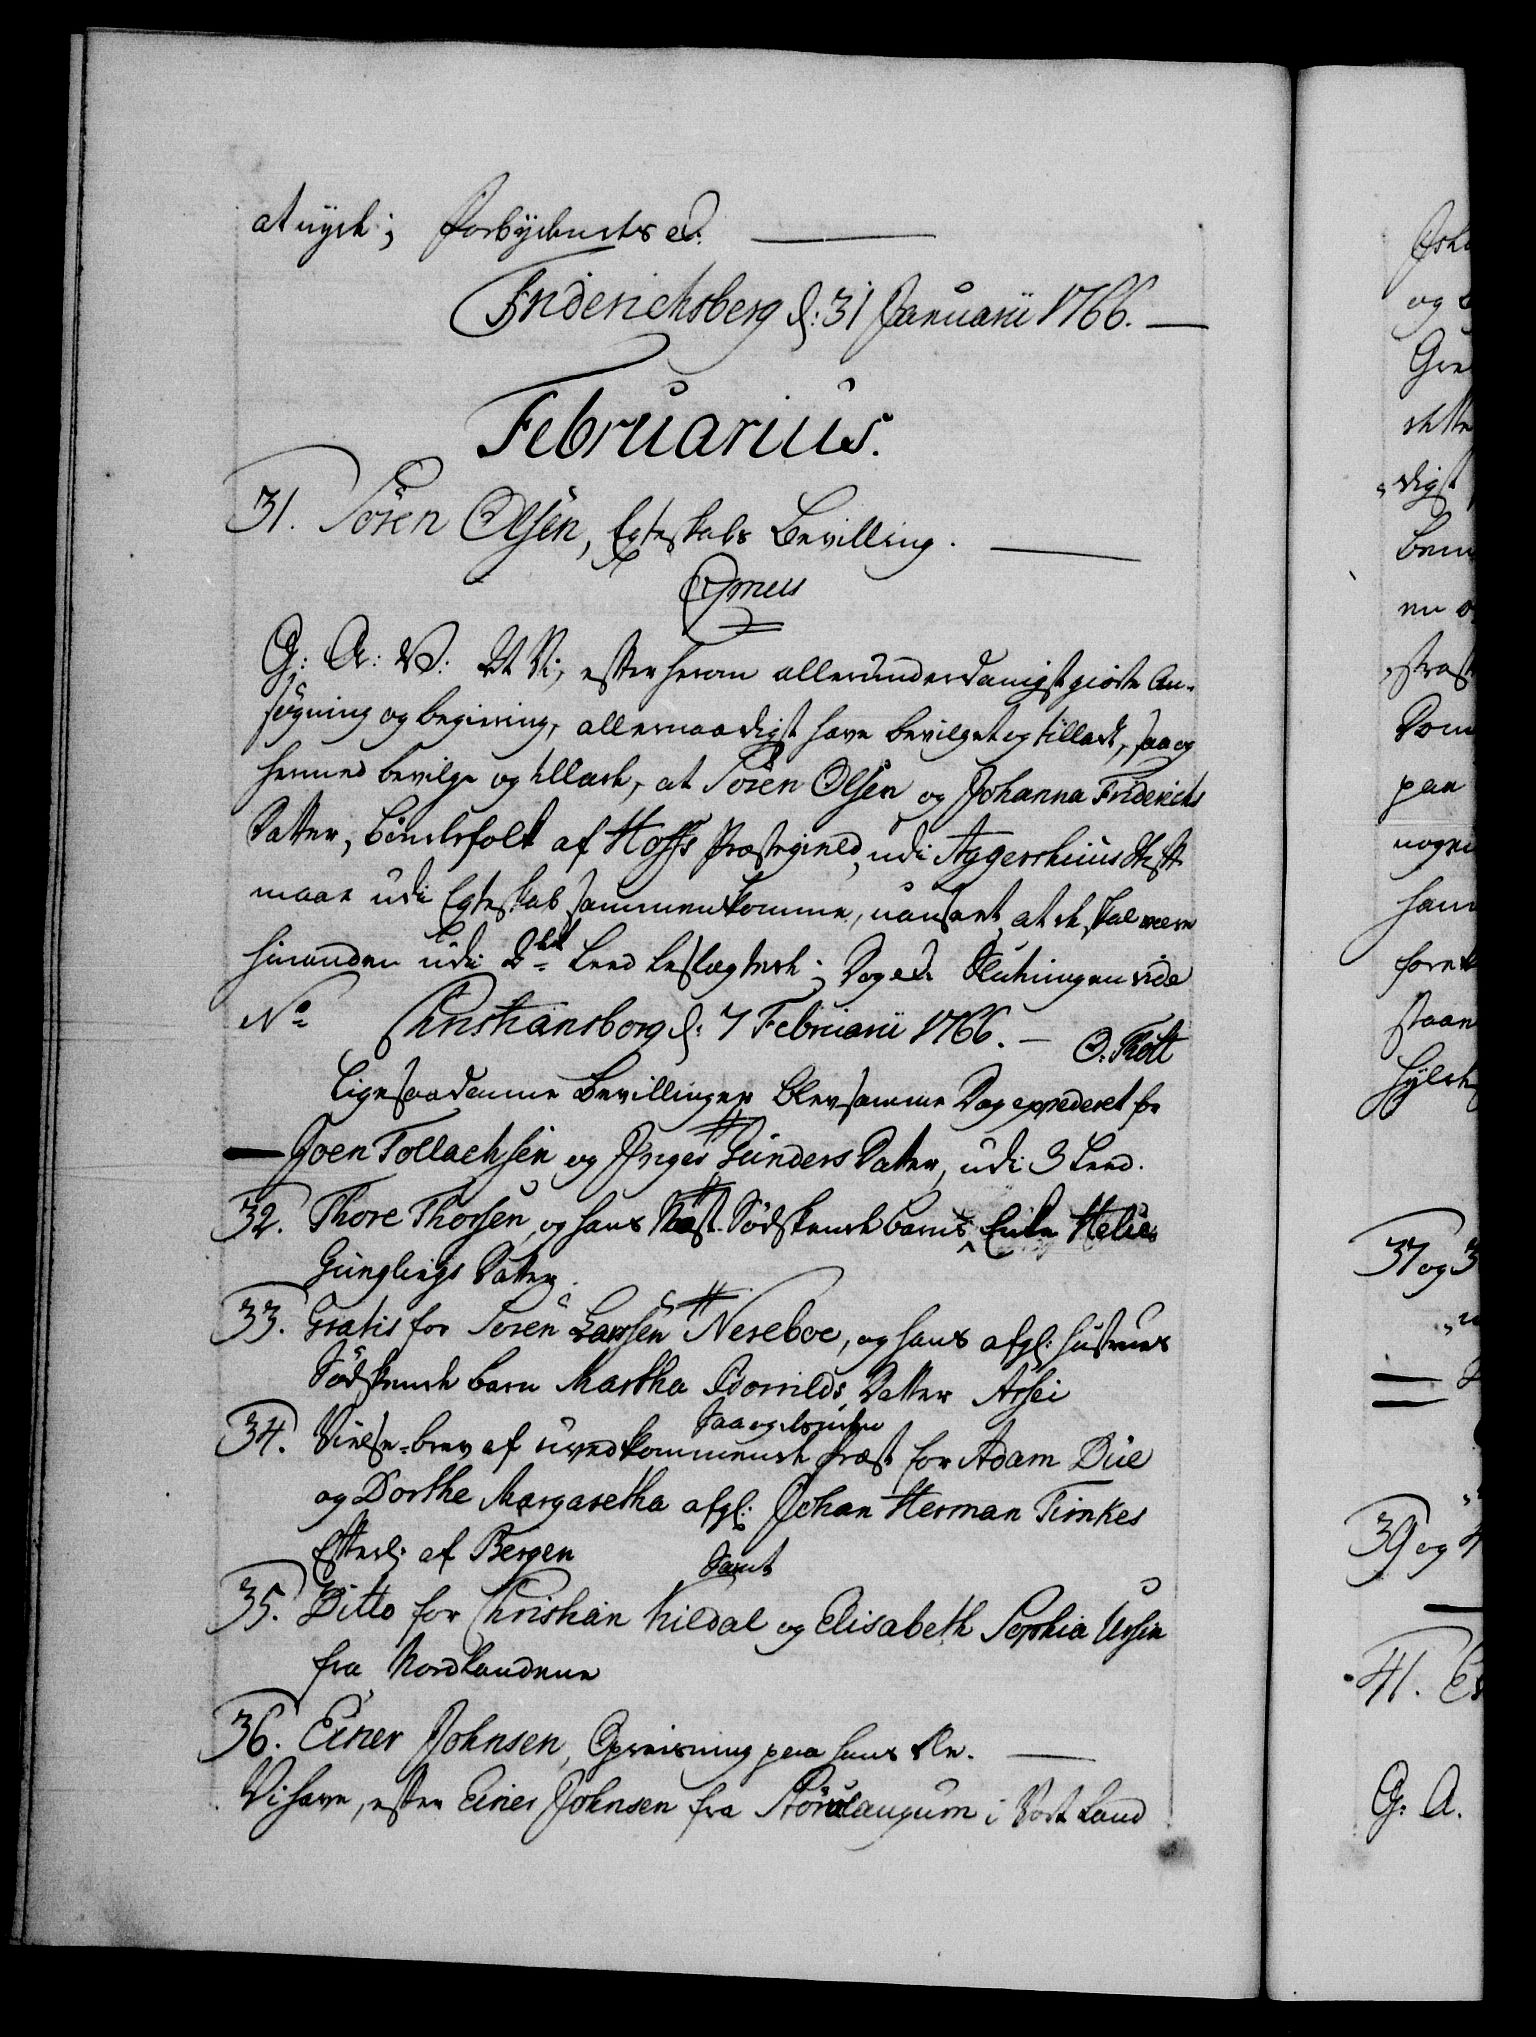 at nyde; Forbydendes &c.
Friderichsberg d: 31 Januarii 1766.
Februarius.
31. Sören Olsen, Egteskabs Bevilling.
G: A: V: At Vi, efter herom allerunderdanigst giorte An-
søgning og begiering, allernaadigst have bevilget og tilladt, saa og
hermed bevilge og tillade, at Sören Olsen og Johanna Friderichs
Datter, Bøndefolk af Hoffs Præstegield, udi Aggershuus Stift
maae udi Egteskab sammenkomme, uanseet, at de skal være
hinanden udi 2det Leed beslægtede; Dog &c. Slutningen vide
No Christiansborg d: 7 Februarii 1766. O. Thott
Ligesaadanne Bevillinger blev samme Dag expederet for
Joen Tollachsen og Inger Gunders Datter, udi 3 Leed.
32. Thore Thorsen, og hans Næst-Södskende barns Enke Helie
Gunglings Datter.
33. Gratis for Soren Larssen Neseboe, og hans afgl: Hustrues
Södskende barn Martha Bornilds Datter Assei
Saa og desuden
34. Vielse-brev af uvedkommende Præst for Adam Düe
og Dorthe Margaretha afgl: Johan Herman Timkes
Efterl: af Bergen
Samt
35. Ditto for Christian Kildal og Elisabeth Sophia Ursin
fra Nordlandene
36. Einer Johnsen, Opreisning paa hans Ære.
Vi have, efter Einer Johnsen fra i Vort Land
og
Gre
digst
paa
37 og 3
39 og 4
41.
G: A.